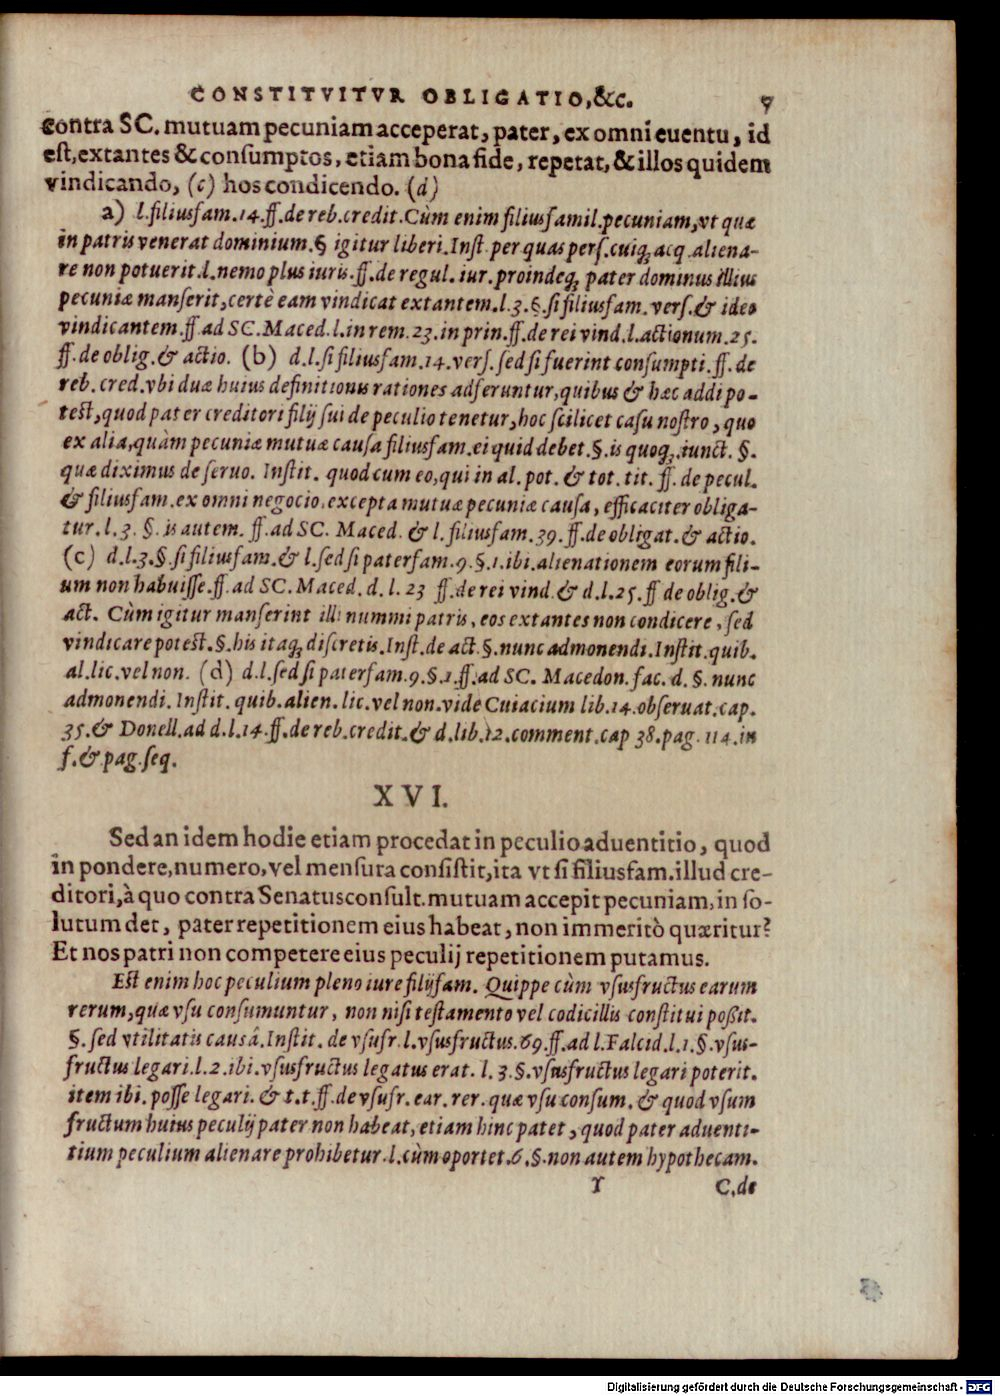 CONSTITVITVR OBLIGATIO,&c.
contra SC. mutuam pecuniam acceperat, pater, ex omni euentu, id
est, extantes & consumptos, etiam bona fide, repetat, & illos quidem
vindicando, (c) hos condicendo. (d)
a) l. filiusfam. 14. ff. de reb. credit. Cùm enim filiusfamil. pecuniam, vt quæ
in patris venerat dominium. § igitur liberi. Inst. per quas pers. cuiq; acq. aliena-
re non potuerit. l. nemo plus iuris. ff. de regul. iur. proindeq; pater dominus illius
pecuniæ manserit, certè eam vindicat extantem. l. 3. §. si filiusfam. vers. & ideo
vindicantem. ff. ad SC. Maced. l. in rem. 23. in prin. ff. de rei vind. l. actionum. 25.
ff. de oblig. & actio. (b) d. l. si filiusfam. 14. vers. sed si fuerint consumpti. ff. de
reb. cred. vbi duæ huius definitionis rationes adferuntur, quibus & hæc addi po-
test, quod pater creditori filij sui de peculio tenetur, hoc scilicet casu nostro, quo
ex alia, quàm pecuniæ mutuæ causa filiusfam. ei quid debet. §. is quoq; iunct. §.
quæ diximus de seruo. Instit. quod cum eo, qui in al. pot. & tot. tit. ff. de pecul.
& filiusfam. ex omni negocio, excepta mutuæ pecuniæ causa, efficaciter obliga-
tur. l. 3. §. is autem. ff. ad SC. Maced. & l. filiusfam. 39. ff. de obligat. & actio.
(c) d. l. 3. §. si filiusfam. & l. sed si paterfam. 9. §. 1. ibi. alienationem eorum fili-
um non habuisse. ff. ad SC. Maced. d. l. 23 ff. de rei vind. & d. l. 25. ff de oblig. &
act. Cùm igitur manserint illi nummi patris, eos extantes non condicere, sed
vindicare potest. §. his itaq; discretis. Inst. de act. §. nunc admonendi. Instit. quib.
al. lic. vel non. (d) d. l. sed si paterfam. 9. §. 1. ff. ad SC. Macedon. fac. d. §. nunc
admonendi. Instit. quib. alien. lic. vel non. vide Cuiacium lib. 14. obseruat. cap.
35. & Donell. ad d. l. 14. ff. de reb. credit. & d. lib. 12. comment. cap 38. pag. 114. in
f. & pag. seq.
XVI.
Sed an idem hodie etiam procedat in peculio aduentitio, quod
in pondere, numero, vel mensura consistit, ita vt si filiusfam. illud cre-
ditori, à quo contra Senatusconsult. mutuam accepit pecuniam, in so-
lutum det, pater repetitionem eius habeat, non immeritò quæritur?
Et nos patri non competere eius peculij repetitionem putamus.
Est enim hoc peculium pleno iure filijfam. Quippe cùm vsusfructus earum
rerum, quæ vsu consumuntur, non nisi testamento vel codicillis constitui poßit.
§. sed vtilitatis causâ. Instit. de vsufr. l. vsusfructus. 69. ff. ad l. Falcid. l. 1. §. vsus-
fructus legari. l. 2. ibi. vsusfructus legatus erat. l. 3. §. vsusfructus legari poterit.
item ibi. posse legari. & t. t. ff. de vsufr. ear. rer. quæ vsu consum. & quod vsum
fructum huius peculij pater non habeat, etiam hinc patet, quod pater aduenti-
tium peculium alienare prohibetur. l. cùm oportet. 6. §. non autem hypothecam.
C. de
Digitalisierung gefördert durch die Deutsche Forschungsgemeinschaft - DFG